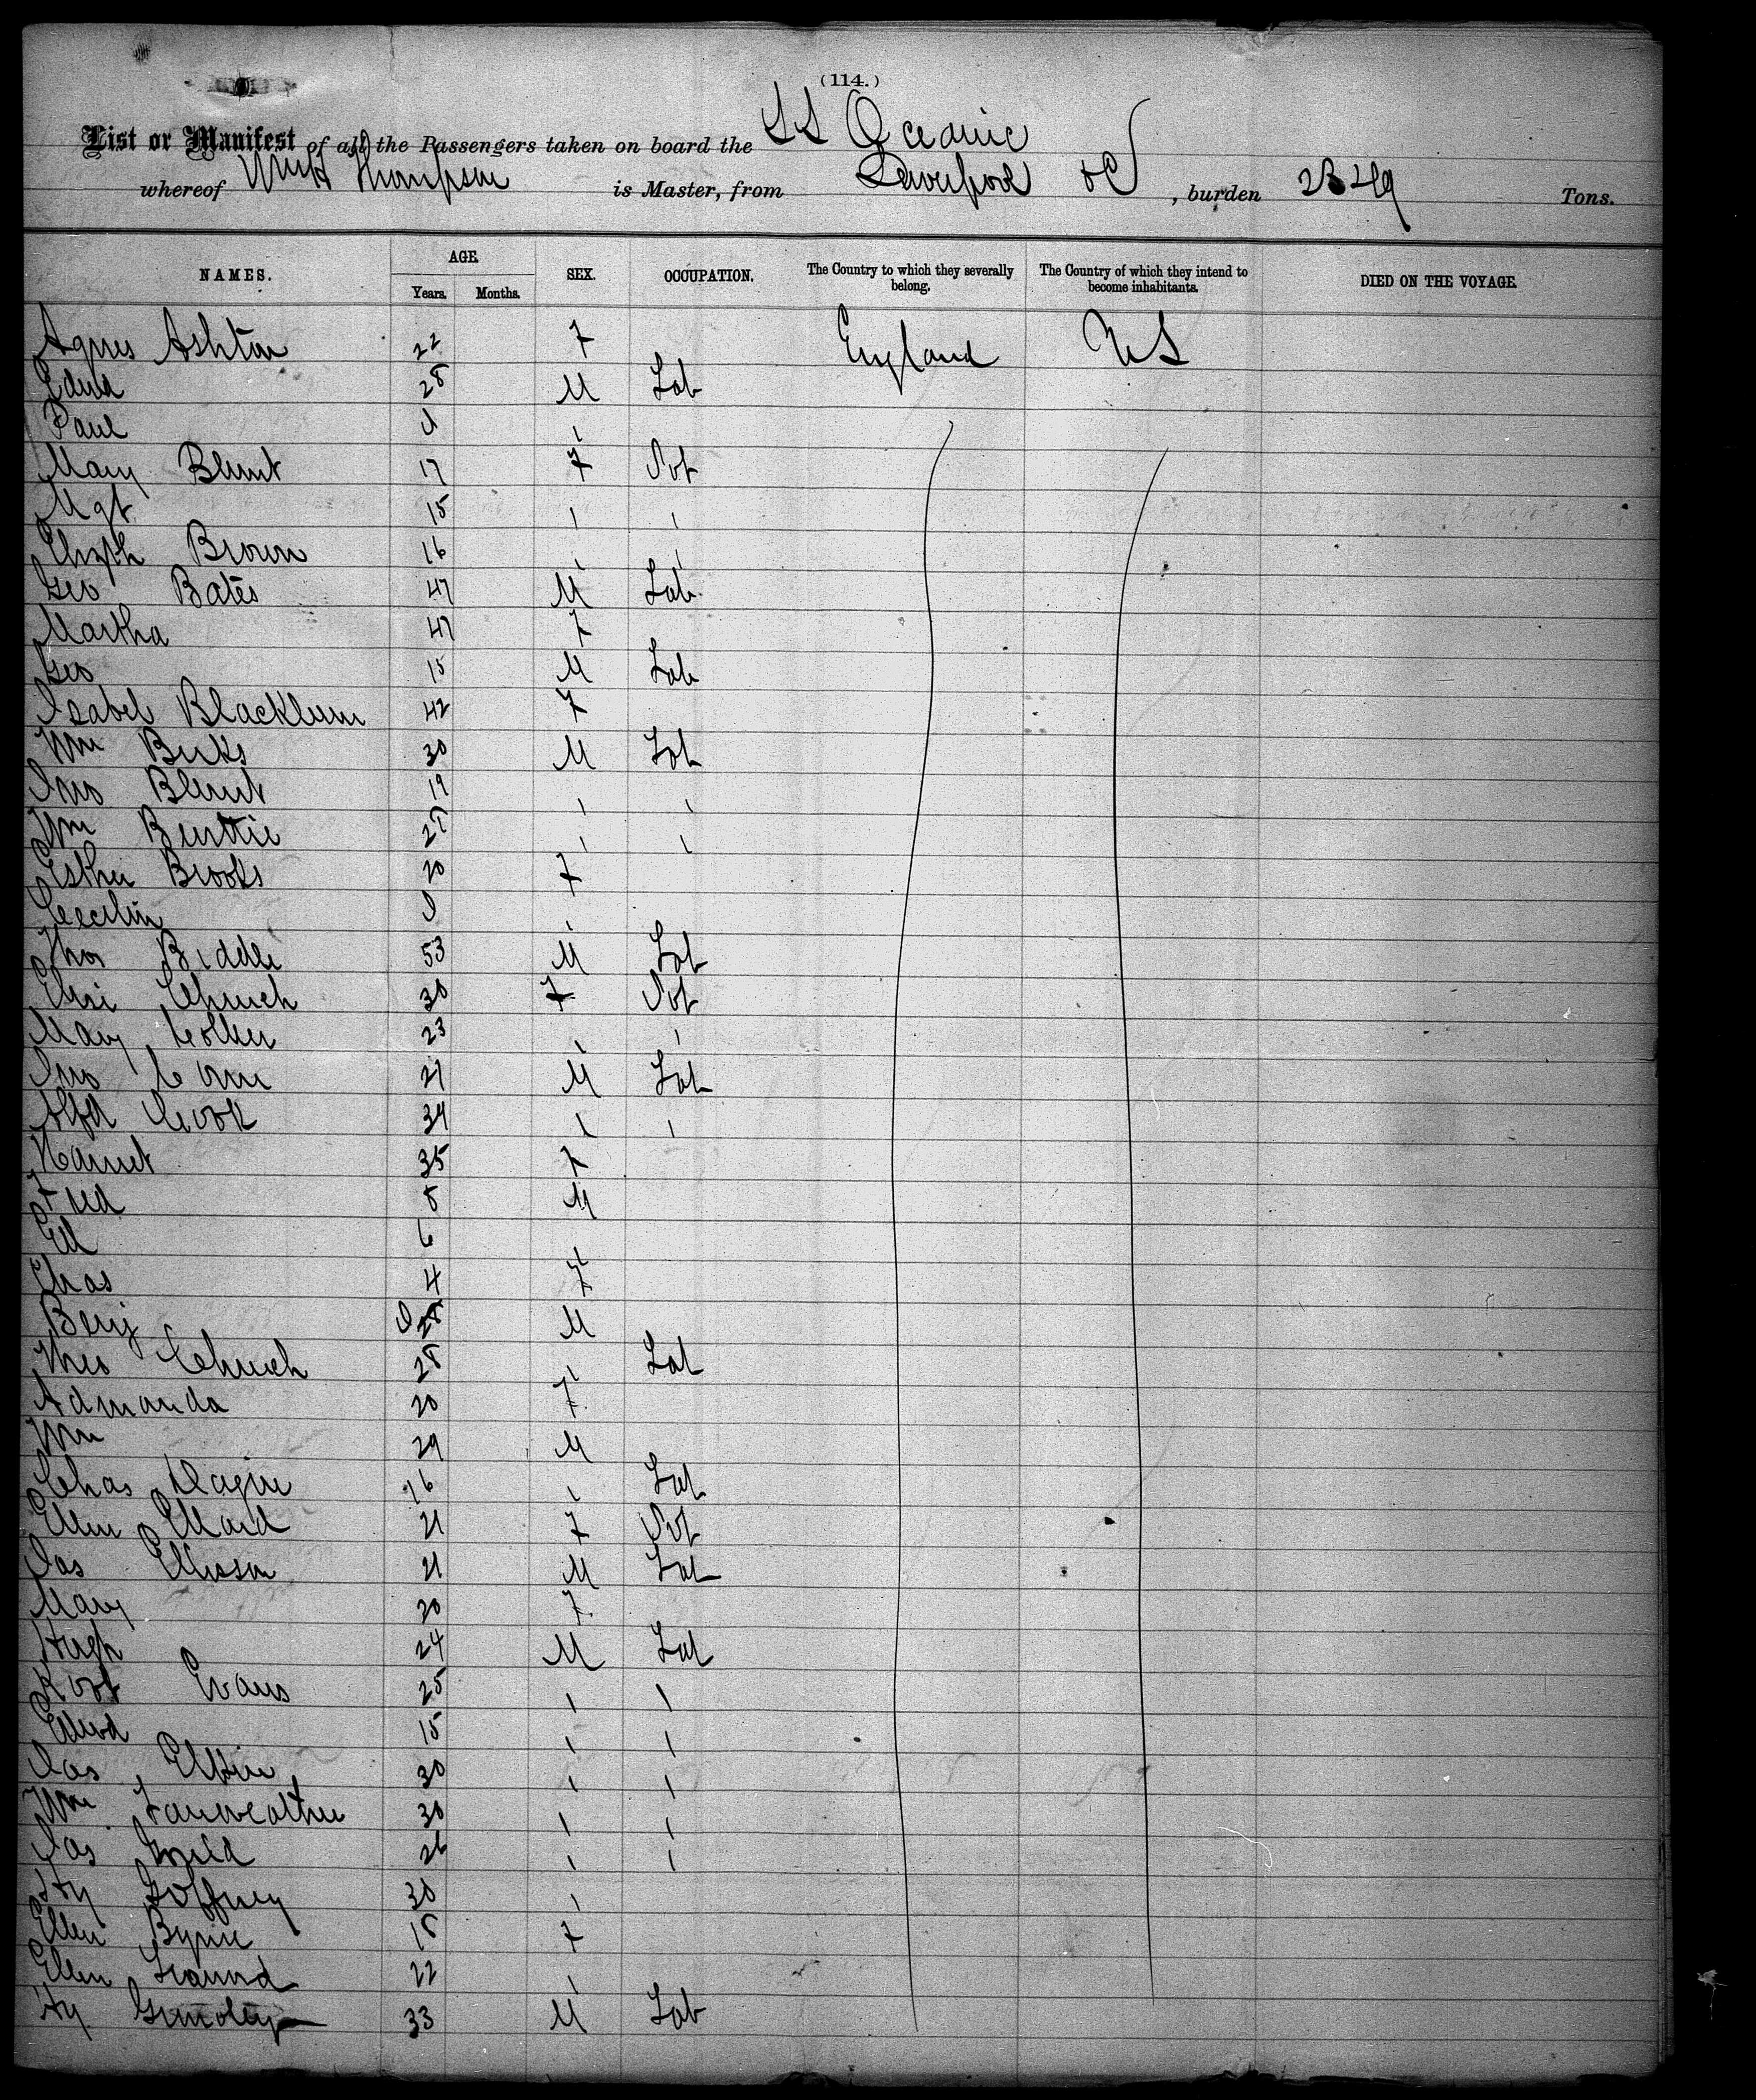 (114.)
List or Manifest of all the Passengers taken on board the SS Oceanic
whereof Thompson is Master, from Liverpool , burden 2349 Tons.
NAMES. AGE. Years. Months. SEX. OCCUPATION. The Country to which they severally belong. The Country of which they intend to become inhabitants. DIED ON THE VOYAGE.
Agnes Ashton 22 F England US
Edwd 28 M Lab
Paul
Mary Blunt 17 F
Mgt 15 " "
Elizth Brown 16 " "
Geo Bates 47 M Lab
Martha 47 F
Geo 15 M Lab
Isabel Blackburn 42 F
Wm Birks 30 M Lab
Jno Blunt 19 " "
Wm 28 " "
Esther Brooks 20 F
"
Thos Biddle 53 M Lab
Church 30 F
Mary 23 " "
Jno 21 M Lab
Alfd Cook 34 " "
Harriet 35 F
Fred 8 M
6 "
Chas 4 F
Benj M
Church 28 " Lab
Admanda 20 F
Wm 29 M
Chas 16 " Lab
Ellen 21 F
Jas 21 M Lab
Mary 20 F
Hugh 24 M Lab
Robt Evans 25 " "
Edwd 15 " "
Jas 30 " "
Wm Fairweather 30 " "
Jas 26 " "
Hy 30 "
Ellen Byrne 18 F
Ellen 22 "
Hy 33 M Lab